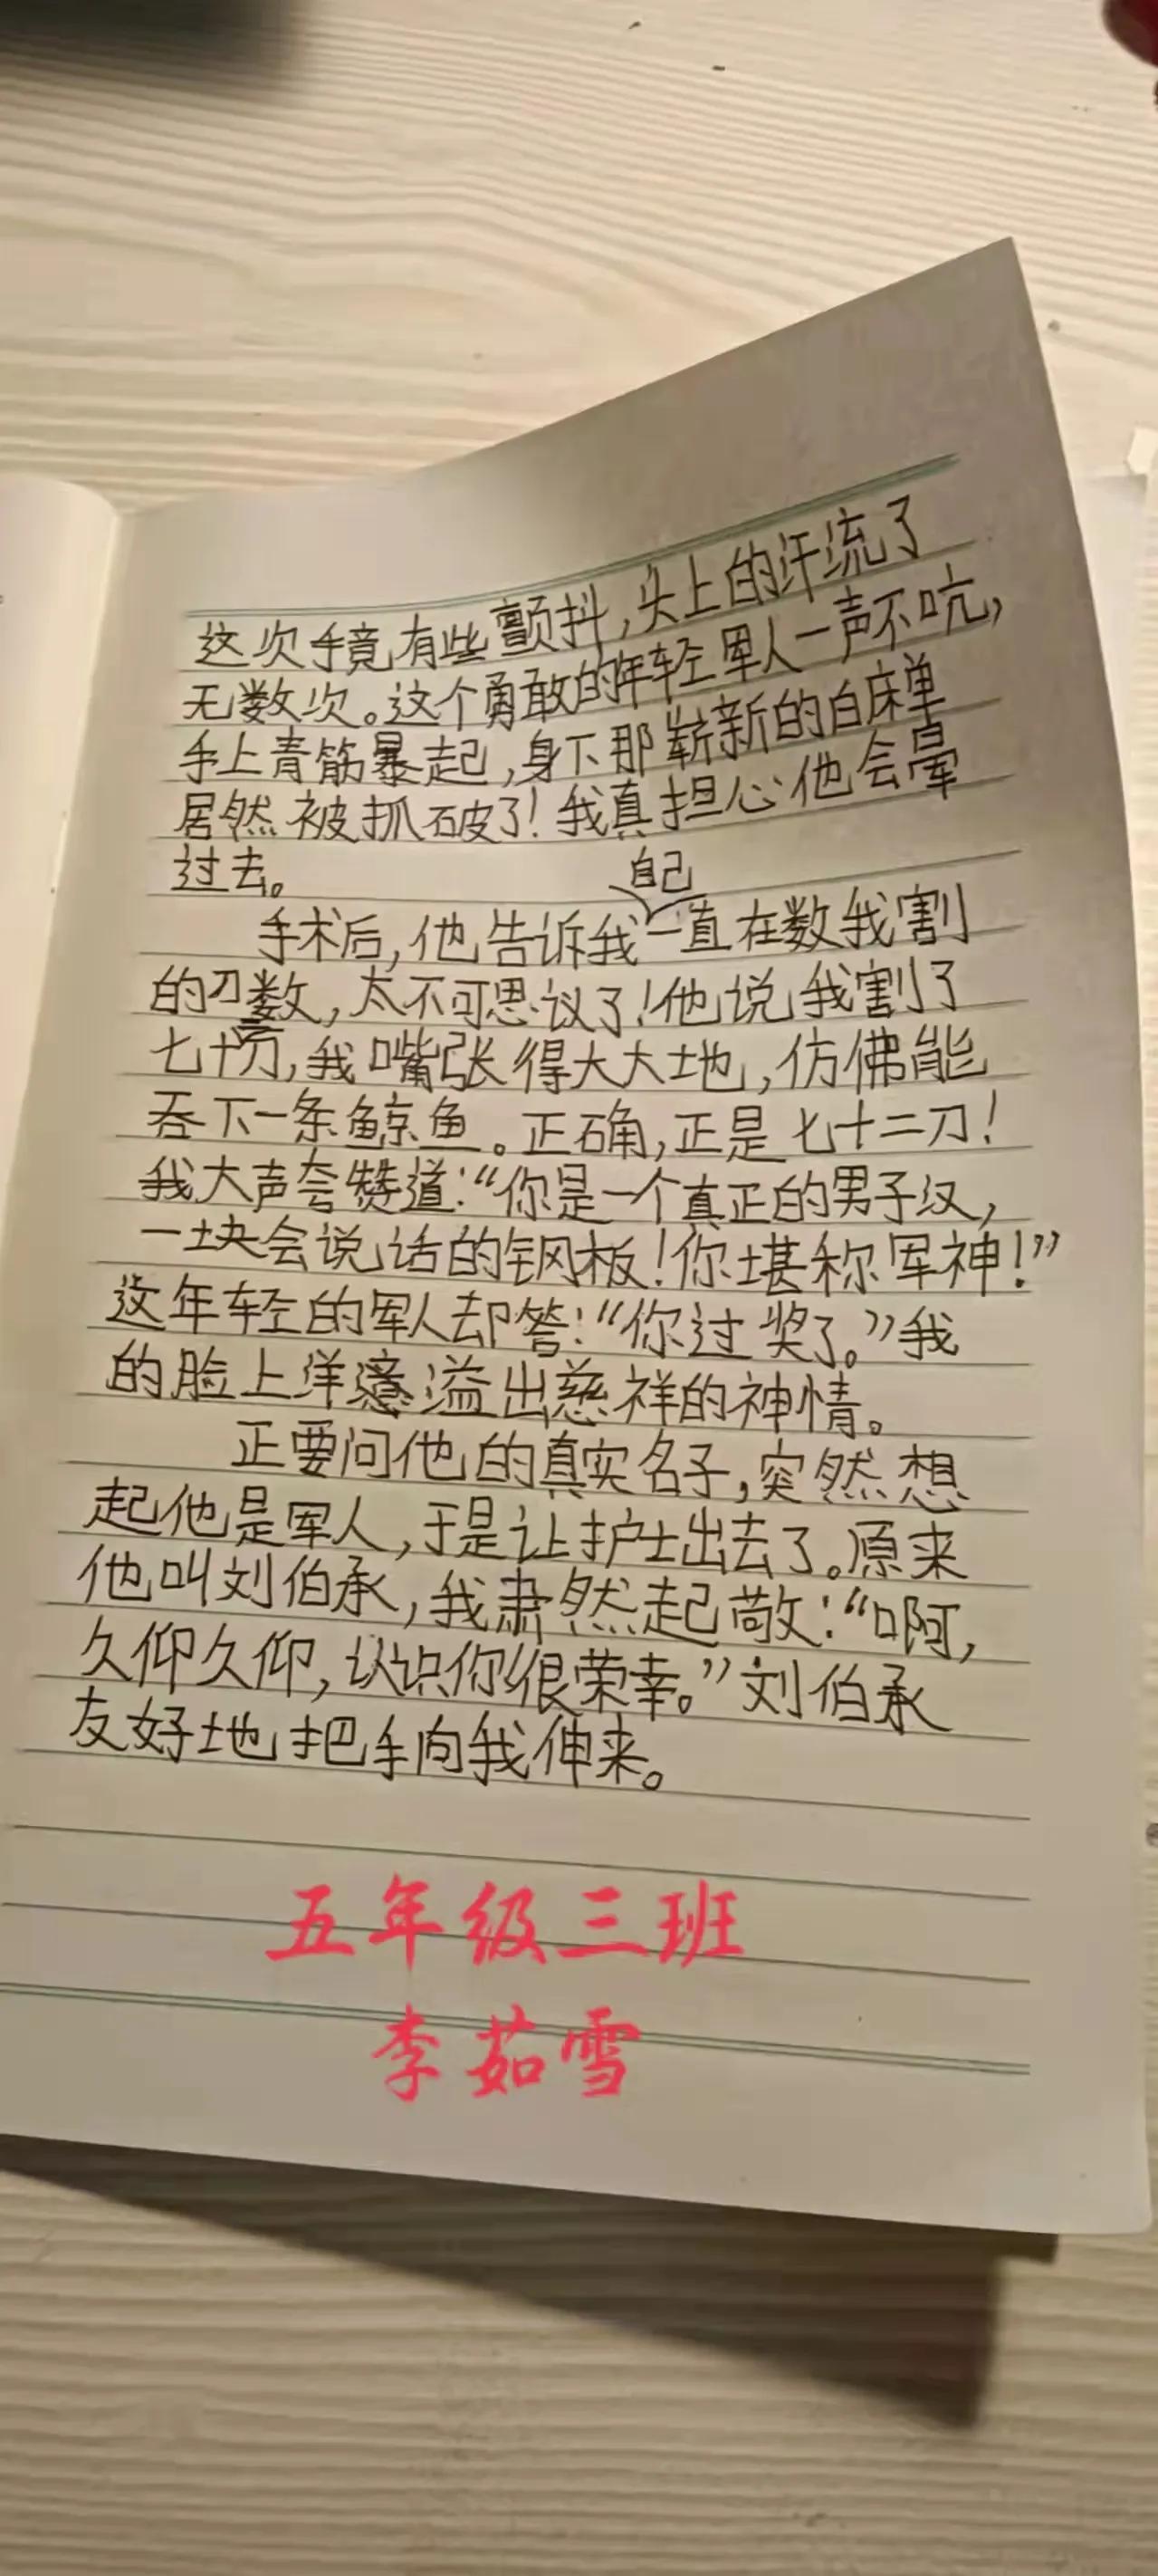 这次手竟有些颤抖,头上的汗流了
无数次。这个勇敢的年轻军人一声不吭,
手上青筋暴起,身下那崭新的白床单
居然被抓破了!我真担心他会晕
过去。
自己
手术后,他告诉我一直在数我割
的刀数,太不可思议了!他说我割了
七十刀,我嘴张得大大地,仿佛能
吞下一条鲸鱼。正确,正是七十二刀!
我大声夸赞道:“你是一个真正的男子汉,
一块会说话的钢板!你堪称军神!”
这年轻的军人却答:“你过奖了。”我
的脸上洋溢出慈祥的神情。
正要问他的真实名子,突然想
起他是军人,于是让护士出去了。原来
他叫刘伯承,我肃然起敬:“啊,
久仰久仰,认识你很荣幸。”刘伯承
友好地把手向我伸来。
五年级三班
李茹雪